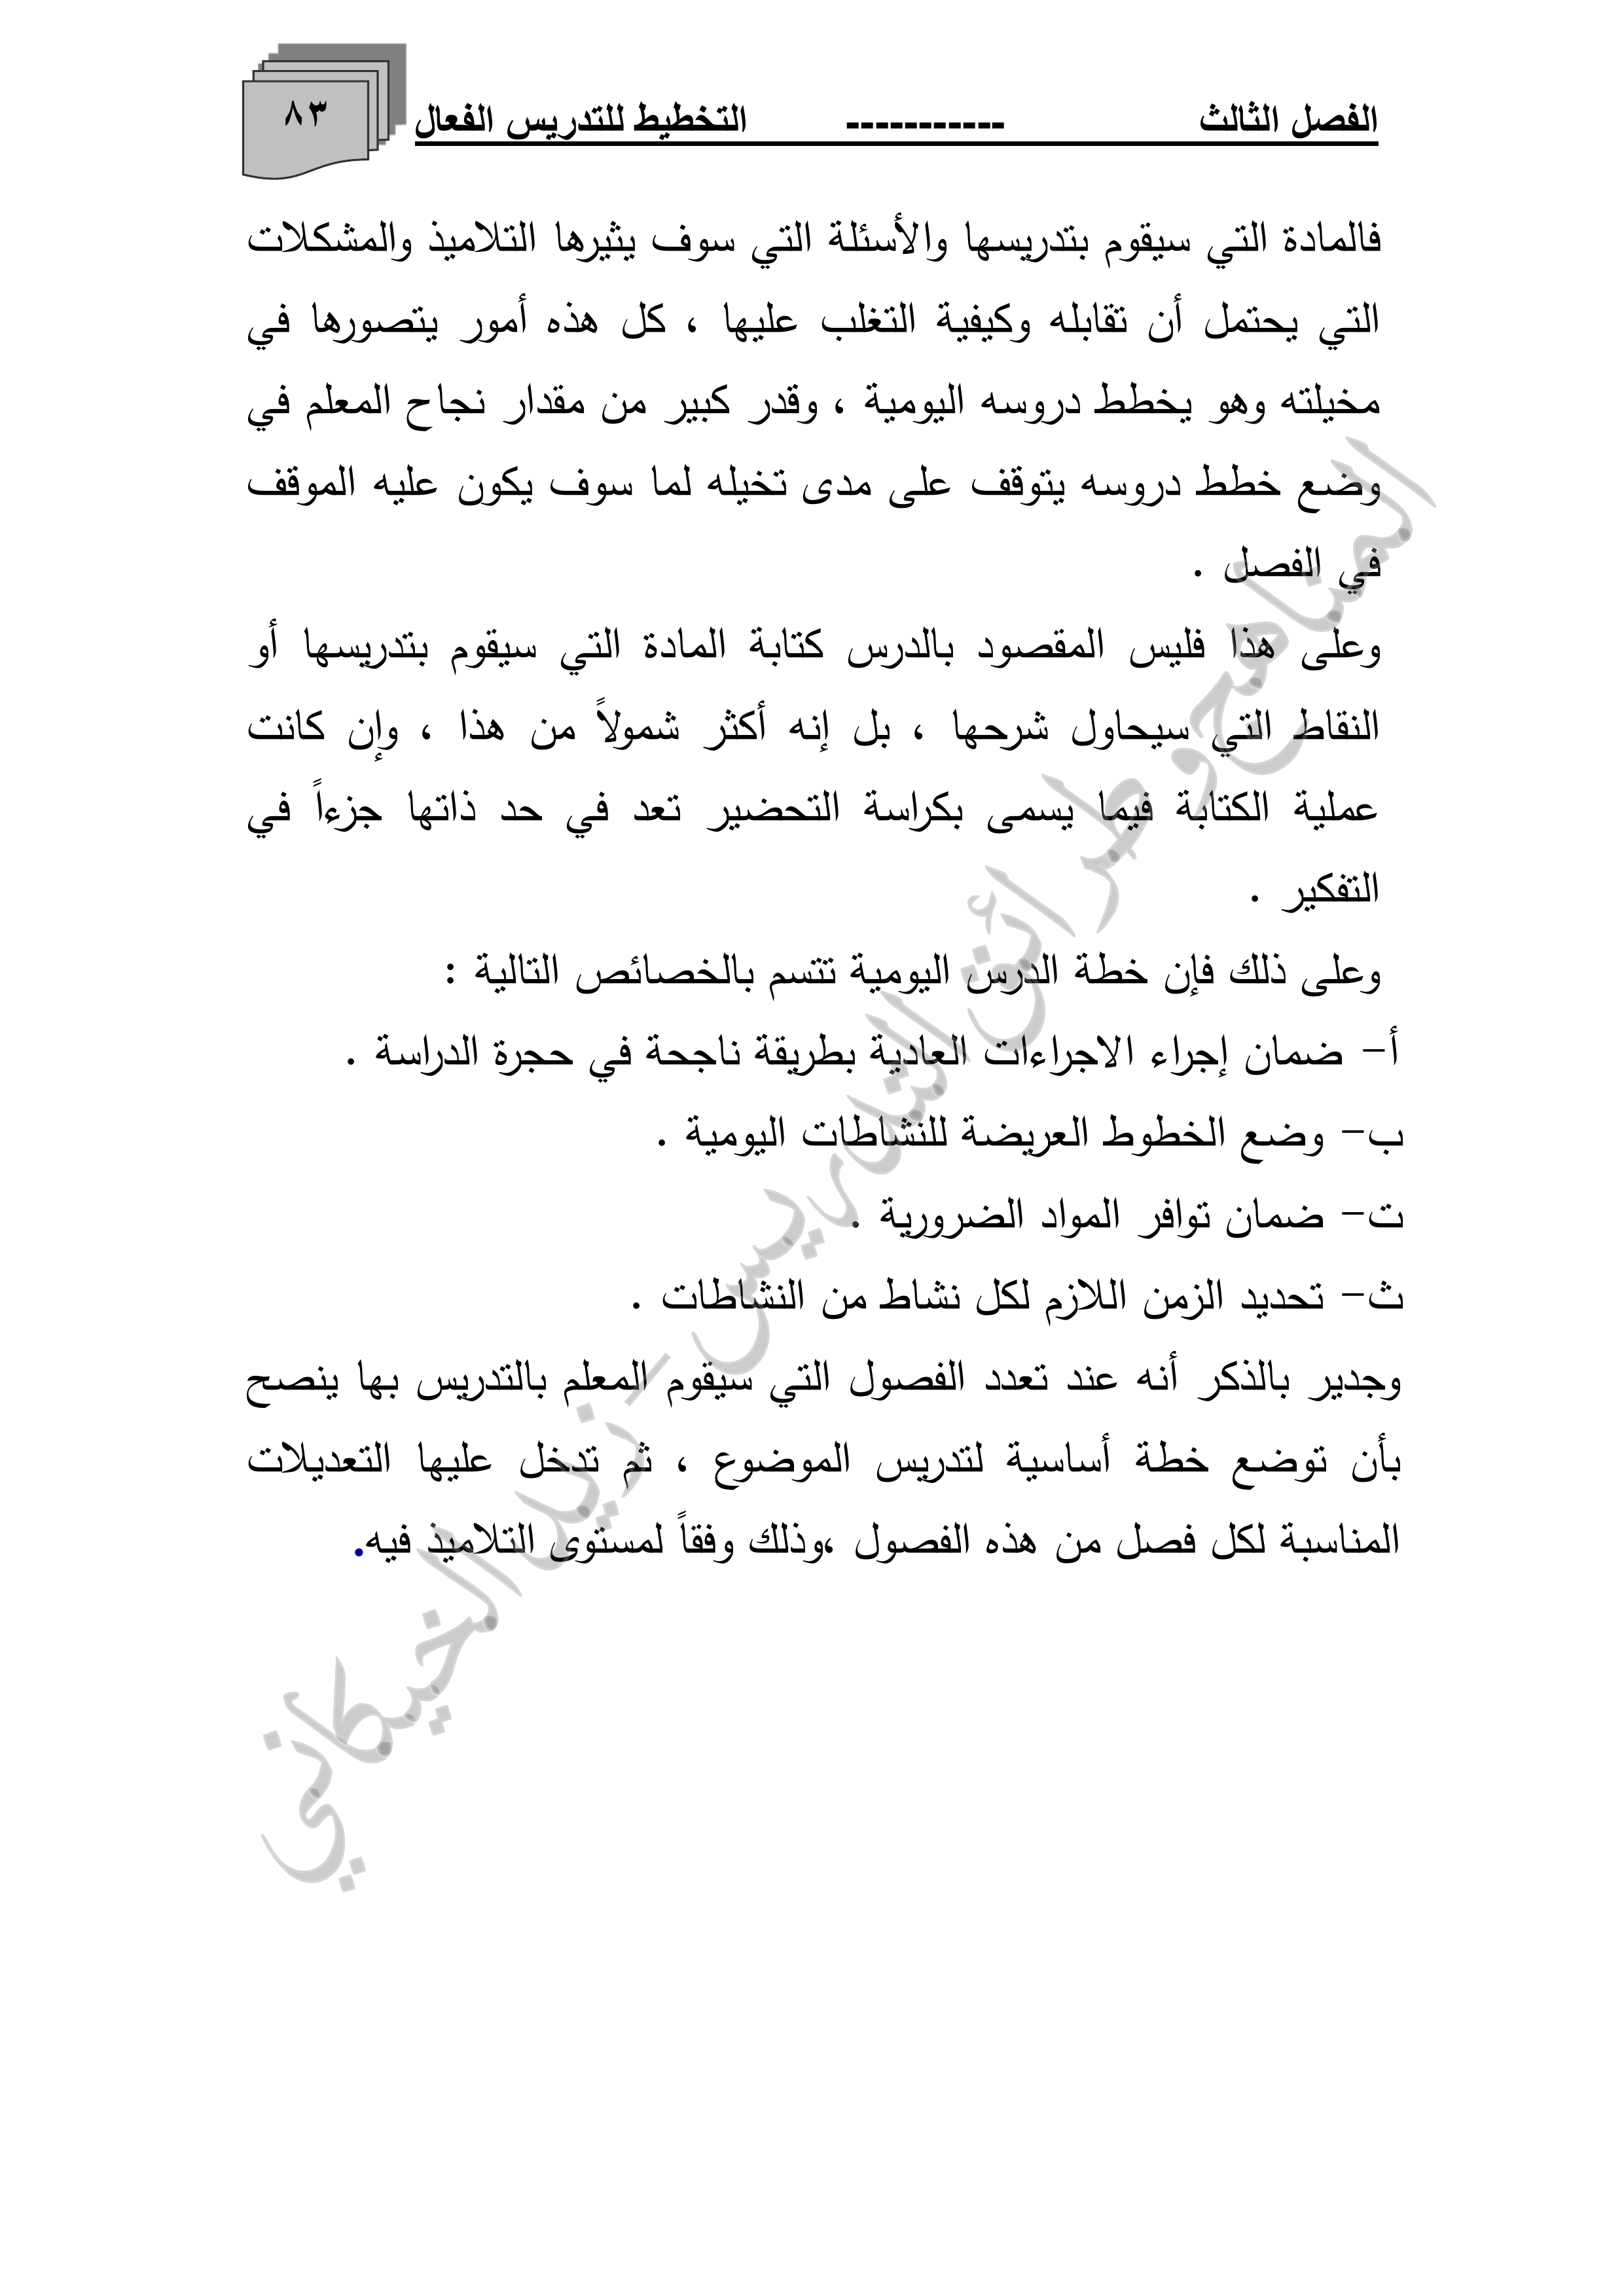 الفصل الثالث ----------- التخطيط للتدريس الفعال ٨٣
فالمادة التي سيقوم بتدريسها والأسئلة التي سوف يثيرها التلاميذ والمشكلات
التي يحتمل أن تقابله وكيفية التغلب عليها ، كل هذه أمور يتصورها في
مخيلته وهو يخطط دروسه اليومية ، وقدر كبير من مقدار نجاح المعلم في
وضع خطط دروسه يتوقف على مدى تخيله لما سوف يكون عليه الموقف
في الفصل .
وعلى هذا فليس المقصود بالدرس كتابة المادة التي سيقوم بتدريسها أو
النقاط التي سيحاول شرحها ، بل إنه أكثر شمولاً من هذا ، وإن كانت
عملية الكتابة فيما يسمى بكراسة التحضير تعد في حد ذاتها جزءاً في
التفكير .
وعلى ذلك فإن خطة الدرس اليومية تتسم بالخصائص التالية :
أ- ضمان إجراء الاجراءات العادية بطريقة ناجحة في حجرة الدراسة .
ب- وضع الخطوط العريضة للنشاطات اليومية .
ت- ضمان توافر المواد الضرورية .
ث- تحديد الزمن اللازم لكل نشاط من النشاطات .
وجدير بالذكر أنه عند تعدد الفصول التي سيقوم المعلم بالتدريس بها ينصح
بأن توضع خطة أساسية لتدريس الموضوع ، ثم تدخل عليها التعديلات
المناسبة لكل فصل من هذه الفصول ،وذلك وفقاً لمستوى التلاميذ فيه.
المناهج وطرائق التدريس - زيد الخيكاني